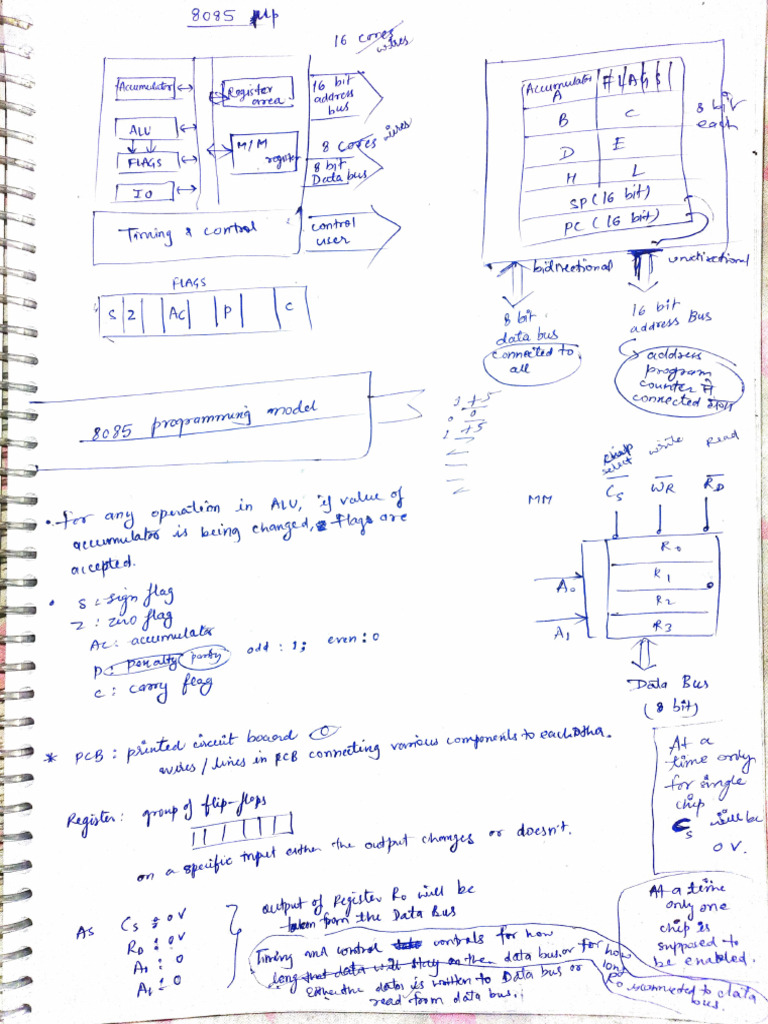 8085 μp
16 cores
wires
Accumulator
ALU
FLAGS
IO
Register
area
M/M
register
Timing & control
16 bit
address
bus
8 cores wires
8 bit
Data bus
control
user
FLAGS
S Z AC P C
Accumulator
A
FLAGS
B C
D E
H L
SP (16 bit)
PC (16 bit)
8 bit
each
bidirectional
unidirectional
8 bit
data bus
connected to
all
16 bit
address Bus
address
program
counter से
connected
8085 programming model
• For any operation in ALU, if value of
accumulator is being changed, Flags are
accepted.
• S : sign flag
Z : zero flag
AC : accumulator
P : penalty parity odd : 1; even : 0
C : carry flag
MM
chip
select
write
Read
CS WR RD
A0
A1
R0
R1
R2
R3
Data Bus
(8 bit)
* PCB : printed circuit board
wires / lines in PCB connecting various components to each other.
Register : group of flip-flops
on a specific input either the output changes or doesn't.
At a
time only
for single
chip
CS will be
0 V.
As CS = 0V
RD = 0V
A0 : 0
A1 = 0
output of Register R0 will be
taken from the Data Bus
Timing and control controls for how
long that data will stay on the data bus or for how
long
either the data is written to Data bus or
read form data bus.
R0 is connected to data
bus.
At a time
only one
chip is
supposed to
be enabled.